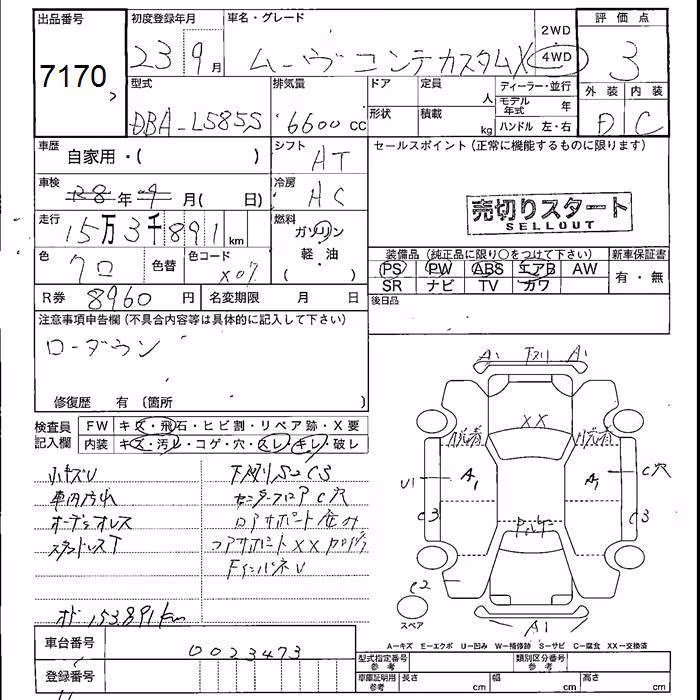 出品番号 初度登録年月 車名・グレード 評価点
7170 23 9月 ムーヴ コンテカスタムX 2WD 4WD 3
型式 排気量 ドア 定員 人 ディーラー・並行 外装 内装
DBA-L585S 6600 cc 形状 積載 kg モデル年式 年 ハンドル 左・右 D C
車歴 自家用・( ) シフト AT セールスポイント(正常に機能するものに限ります)
車検 28年9月( 日) 冷房 AC
売切りスタート
SELLOUT
走行 15万3千891km 燃料 ガソリン 軽・油
装備品(純正品に限り○をつけて下さい) 新車保証書
色 クロ 色替 色コード X07 PS PW ABS エアB AW 有・無
SR ナビ TV カワ
R券 8960円 名変期限 月 日 後日品
注意事項申告欄(不具合内容等は具体的に記入して下さい)
ローダウン
修復歴 有 〔箇所 〕
検査員記入欄 FW キズ・飛石・ヒビ割・リペア跡・X要
内装 キズ・汚レ・コゲ・穴・スレ・キレ・破レ
小キズU 下廻りS2C3
車内汚れ センターフロアC穴
オーディオレス
スタッドレスT
オド153,891km
A1 下廻り A1
XX
U1 A1 A1 C穴
C3 C3
C2
スペア
A1
A=キズ E=エクボ U=凹み W=補修跡 S=サビ C=腐食 XX=交換済
車台番号 0023473
型式指定番号 参考 類別区分番号 参考
登録番号 車庫証明用 参考 長さ cm 幅 cm 高さ cm